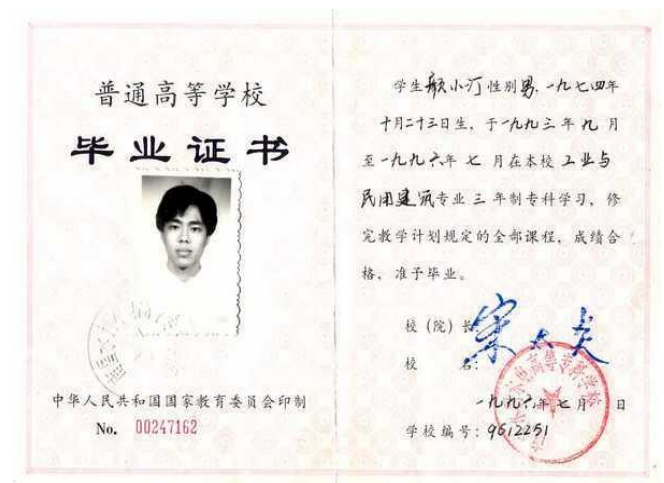 普通高等学校
毕业证书
中华人民共和国国家教育委员会印制
No. 00247162
学生颜小汀性别男，一九七四年
十月二十三日生，于一九九三年九月
至一九九六年七月在本校工业与
民用建筑专业三年制专科学习，修
完教学计划规定的全部课程，成绩合
格，准予毕业。
校（院）长
校 名：
高等专科学校
一九九六年七月 日
学校编号：9612251